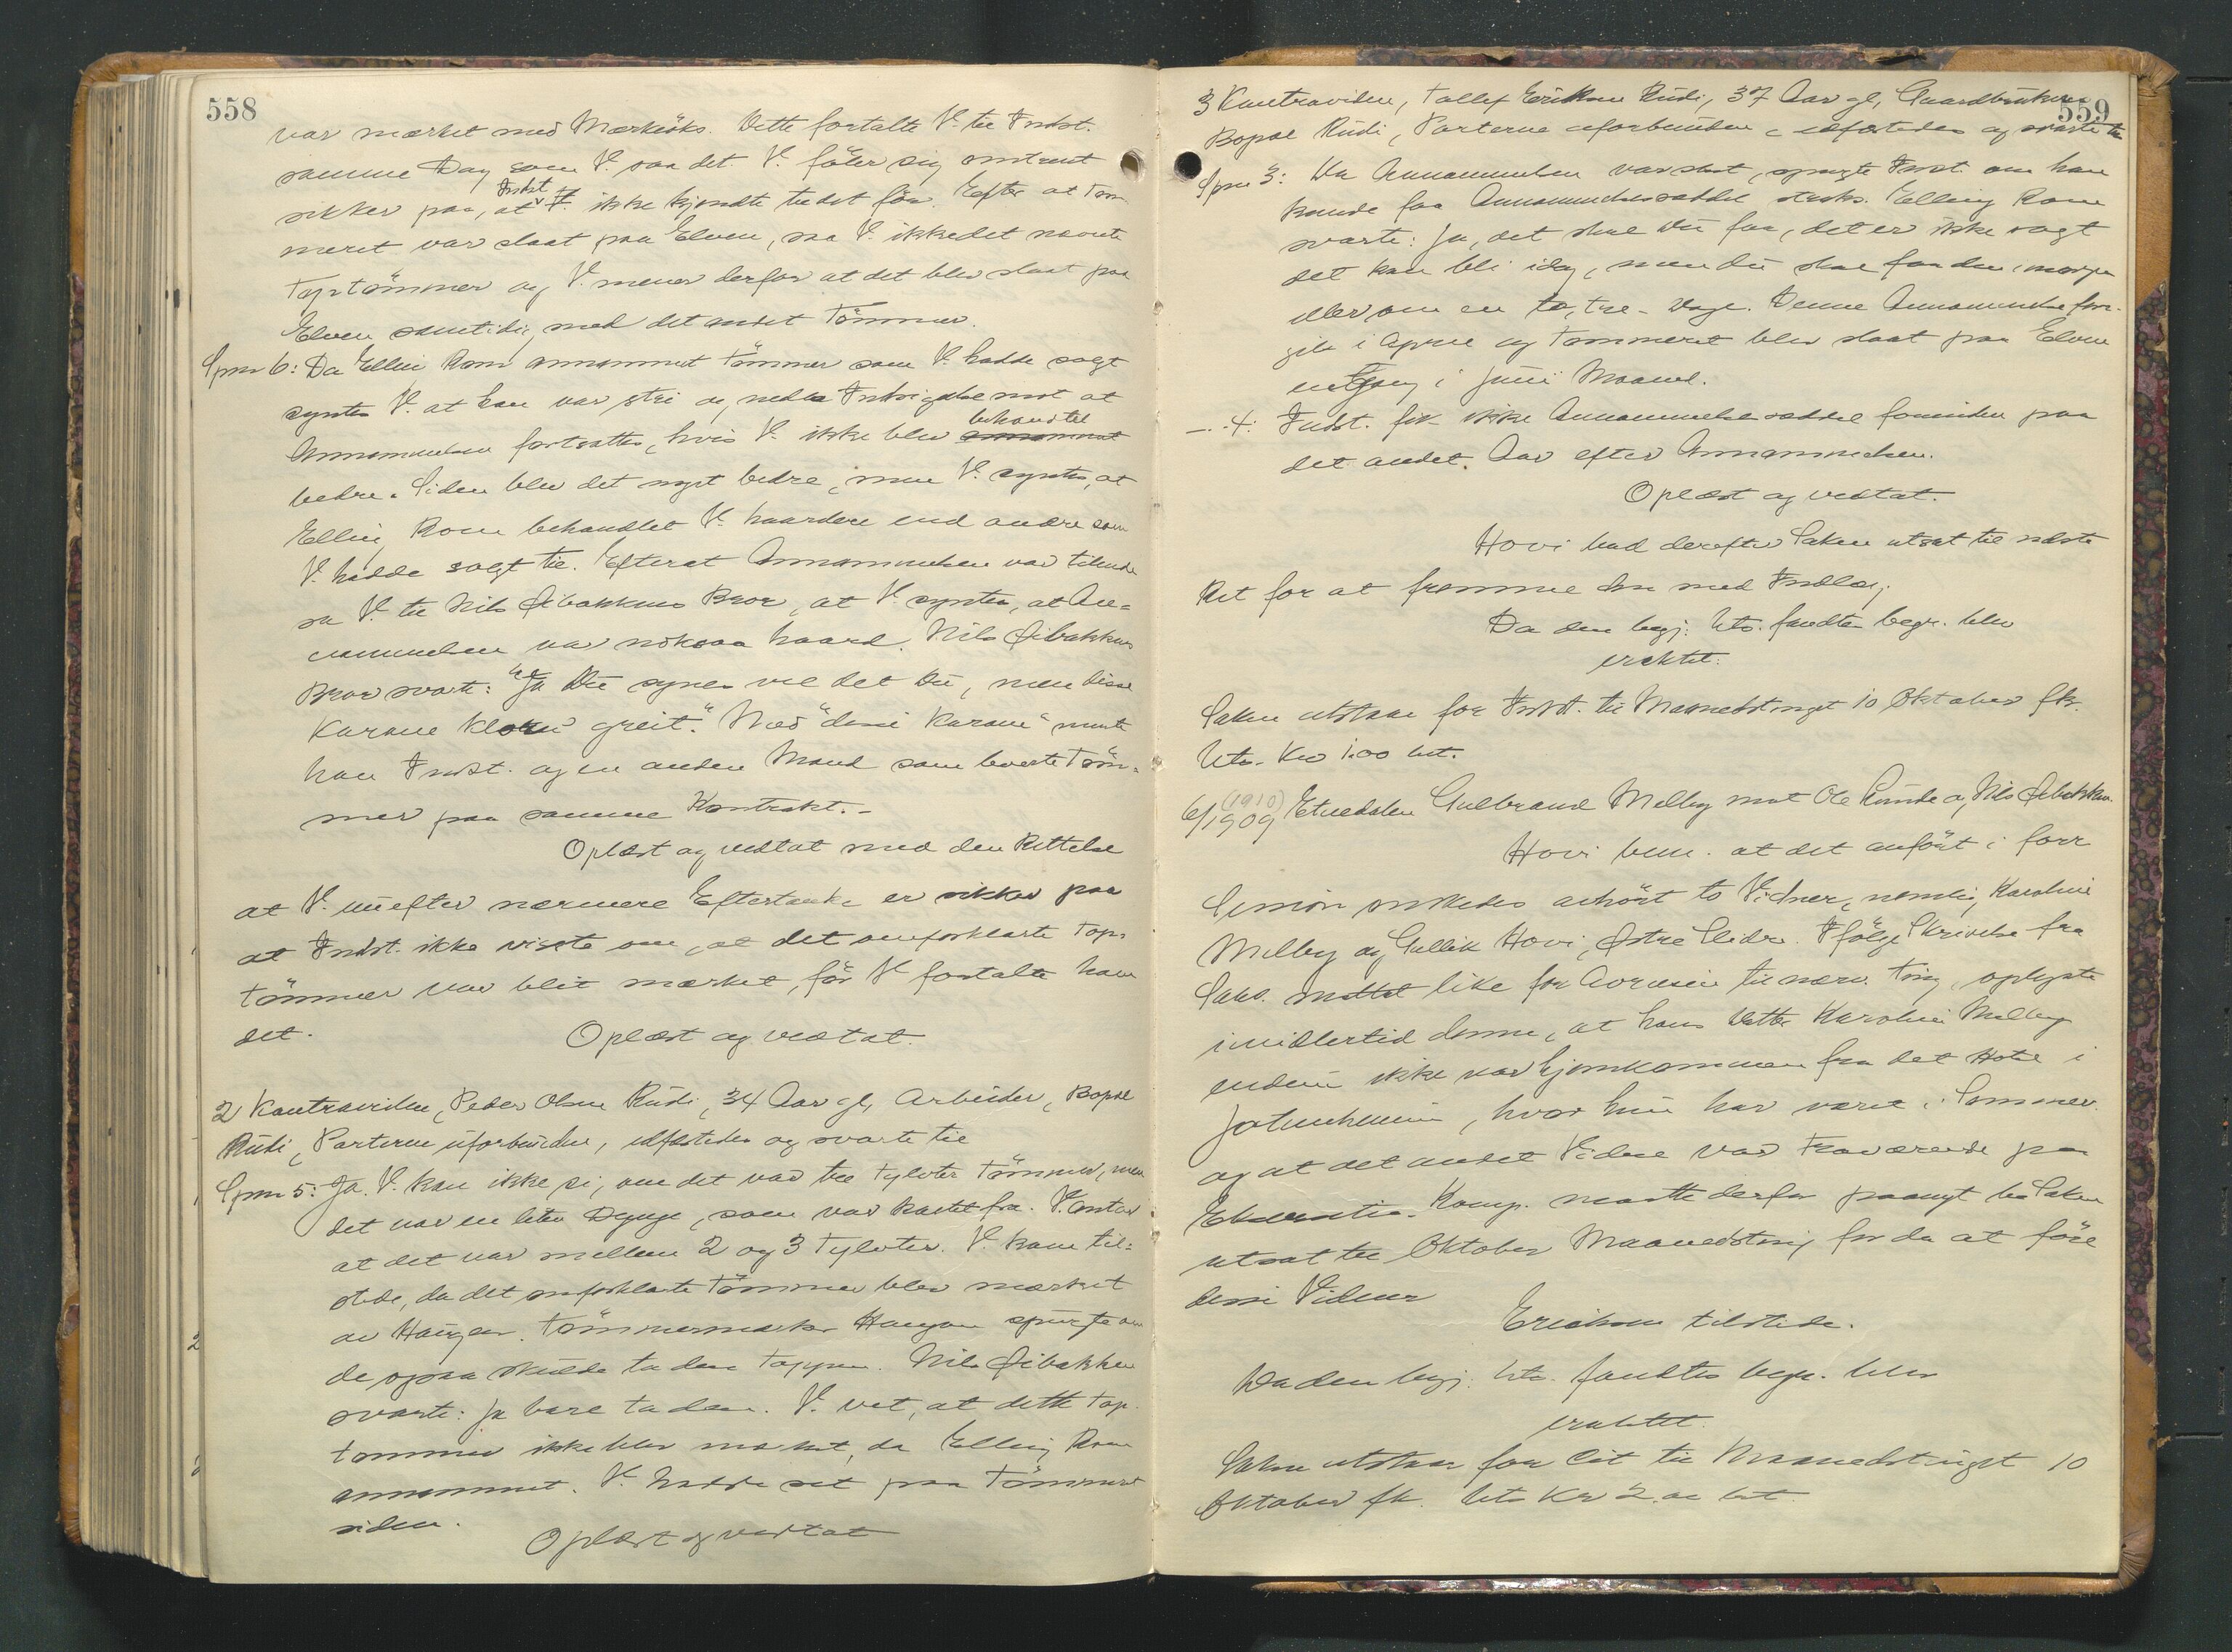 558
var mærket med Mærkeöks. Dette fortalte V. til Indst.
samme Dag som V. saa det. V. föler sig omtrent
sikker paa, at Indst. ikke kjendte til det för. Efter at Töm
meret var slaat paa Elven, saa V. ikke det nævnte
Toptömmer og V. mener derfor at det blev slaat paa
Elven samtidig med det andet Tömmer.
Spm 6: Da Elling Rom annammet Tömmer som V. hadde solgt
syntes V. at han var stri og nedla Indsigelse mot at
Annammelsen fortsattes, hvis V. ikke blev behandlet
bedre. Siden blev det noget bedre, men V. syntes, at
Elling Rom behandlet V. haardere end andre som
V. hadde solgt til. Efterat Annammelsen var tilende
sa V. til Nils Øibakkens Bror, at V. syntes, at An-
nammelsen var noksaa haard. Nils Øibakkens
Bror svarte: "Ja Du synes vel det Du, men disse
Karane greit." Med "disse Karane" mente
han Indst. og en anden Mand som leverte Töm-
mer paa samme Kontrakt. -
Oplæst og vedtat med den Rettelse
at V. nu efter nærmere Eftertanke er sikker paa
at Indst. ikke visste om, at det omforklarte Top-
tömmer var blit mærket, för V. fortalte ham
det.
Oplæst og vedtat.
2 Kontravidne, Peder Olsen Rudi, 34 Aar gl, Arbeider, Bopæl
Rudi, Parterne uforbunden, edfæstedes og svarte til
Spm 5: Ja. V. kan ikke si, om det var tre Tylvter Tömmer, men
det var en liten Dynge, som var kastet fra. V. antar
at det var mellem 2 og 3 Tylvter. V. kom til-
stede, da det omforklarte Tömmer blev mærket
av Haugen. Tömmermærker Haugen spurgte om
de ogsaa skulde ta den Toppen. Nils Øibakken
svarte: Ja bare ta den. V. vet, at dette Top-
tömmer ikke blev mærket, da Elling Rom
annammet. V. hadde set paa Tömmeret
siden.
Oplæst og vedtat
559
3 Kontravidne, Tollef Eriksen Rudi, 37 Aar gl, Gaardbruker
Bopæl Rudi, Parterne uforbunden, edfæstedes og svarte til
Spm 3: Da Annammelsen var slut, spurgte Indst. om han
kunde faa Annammelsesseddel straks. Elling Rom
svarte: Ja, det skal Du faa, det er ikke sagt
det kan bli idag, men du skal faa den imorgen
eller om en to, tre Dage. Denne Annammelse fore-
gik i April og Tömmeret blev slaat paa Elven
engang i Juni Maaned.
-.- 4: Indst. fik ikke Annammelsesseddel forinden paa
det andet Aar efter Annammelsen.
Oplæst og vedtat.
Hovi bad derefter Saken utsat til næste
Ret for at fremme den med Indlæg.
Da den begj. Uts. fandtes begr. blev
eraktet:
Saken utstaar for Indst. til Maanedstinget 10 Oktober fk.
Uts. Kr 1.00 bet.
6/1909 (1910) Etnedalen Gulbrand Melby mot Ole Lunde og Nils Øibakken.
Hovi bem. at det anfört i forr
Session önskedes avhört to Vidner, nemlig Karoline
Melby og Gullik Hovi, Østre Slidre. Ifölge Skrivelse fra
Saks. like för Avreisen til nærv. Ting, oplyste
imidlertid denne, at hans Datter Karoline Melby
endnu ikke var hjemkommen fra det Hotel i
Jotunheimen, hvor hun har været i Sommer.
og at det andet Vidne var fraværende paa
Komp. maatte derfor paanyt be Saken
utsat til Oktober Maanedsting for da at före
disse Vidner
Erichsen tilstede.
Da den begj. Uts. fandtes begr. blev
eraktet.
Saken utstaar for Cit. til Maanedstinget 10
Oktober fk. Uts Kr 2.00 bet